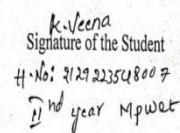 K. Veena
Signature of the Student
H.No: 2129223548007
II nd year MPWET